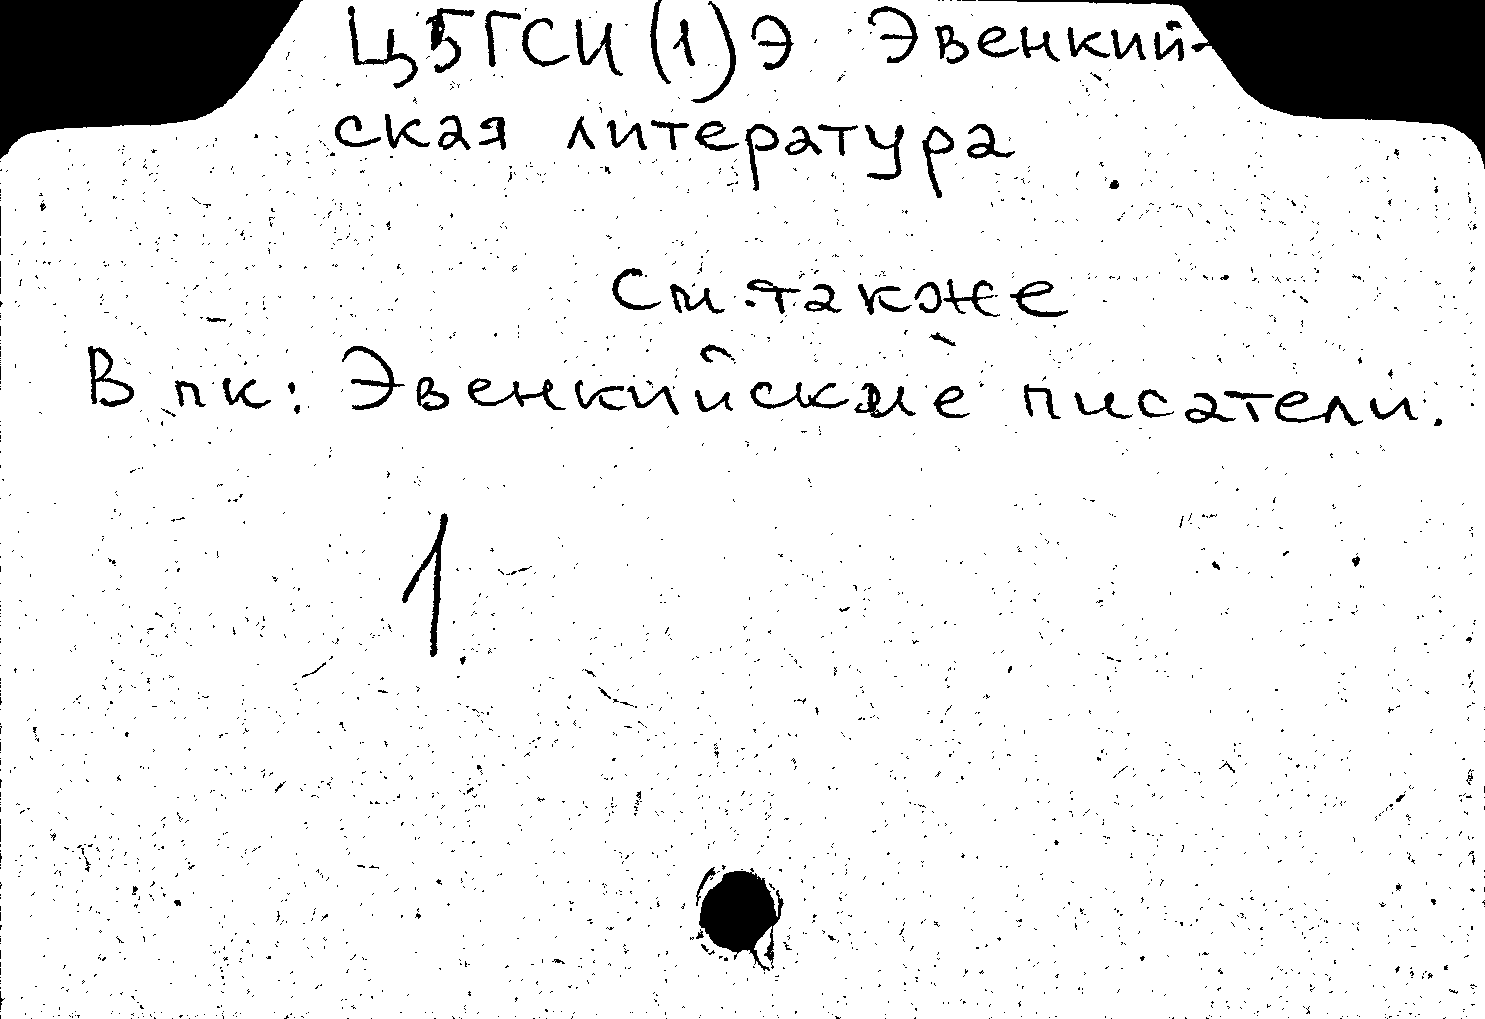 Ц5ГСИ(1)Э Эвенкий-
ская литература
См. также
В пк: Эвенкийские писатели.
1